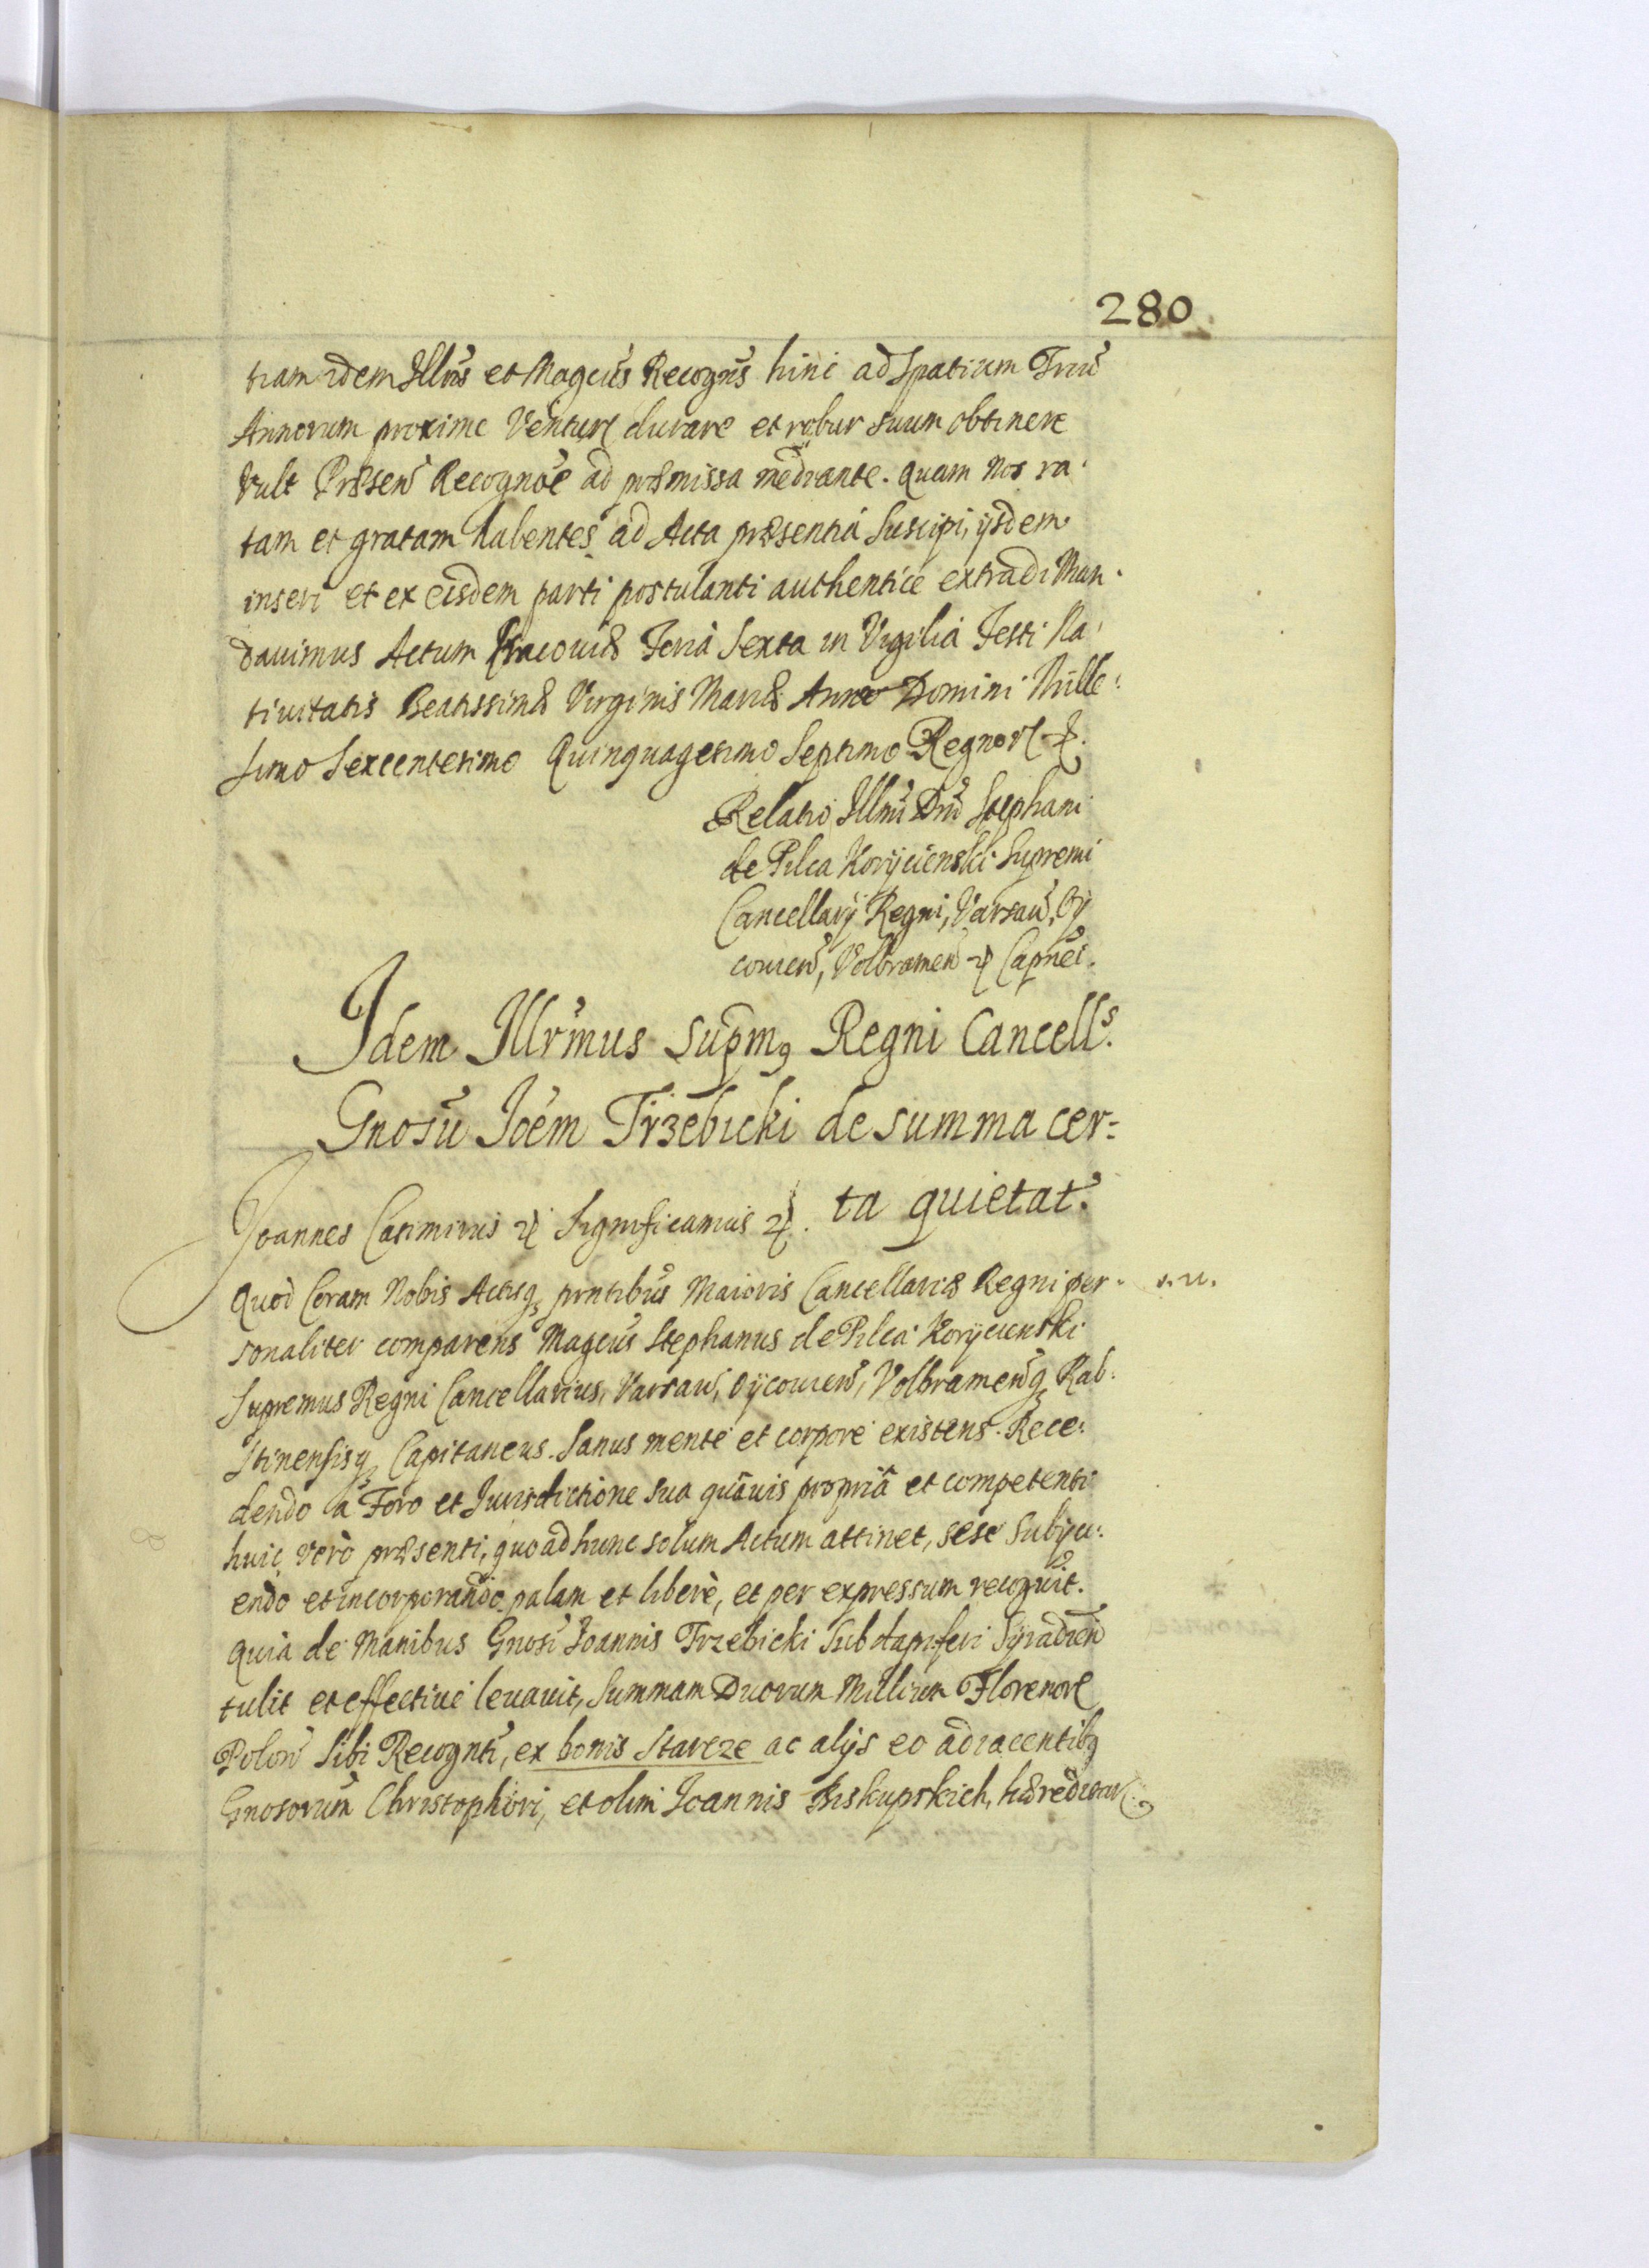 280
tiam idem Illris et Magcus Recogns hinc ad Spatium Trium
Annorum proxime Ventur durare et robur suum obtinere
vult Præsen Recognoe ad præmissa mediante. quam nos ra-
tam et gratam habentes ad Acta præsentia suscipi, ijsdem
inseri et ex eisdem parti postulanti authentice extradi Man-
davimus Actum Cracoviæ Feria Sexta in Vigilia Festi Na-
tivitatis Beatissimæ Virginis Mariæ Anno Domini Mille-
simo Sexcentesimo Quinquagesimo Septimo Regnor
Relatio Illmi Dni Stephani
de Pilca Korÿcienski Supremi
Cancellarÿ Regni, Varsav, Oÿ
covien, Volbramen Capnei.
Idem Illrmus Supmg Regni Cancells.
Gnosu Joem Trzebicki de summa cer=
ta quietat.
Joannes Casimirus Significamus
Quod Coram Nobis Actisq prntibus Maioris Cancellariæ Regni per-
sonaliter comparens Magcus Stephanus de Pilca Korÿcienski
Supremus Regni Cancellarius, Varsav, Oÿcovien, Volbramenq Rab-
stinensisq Capitaneus. Sanus mente et corpore existens. Rece-
dendo a Foro et Jurisdictione sua quavis propriâ et competenti
huic verò præsenti, quo ad hunc solum Actum attinet, sese subijci-
endo et incorporando palam et liberè, et per expressum recognvit.
Quia de Manibus Gnosi Joannis Trzebicki Subdapiferi Sÿradien
tulit et effective levavit, Summam Duorum Millium Florenor
Polon Sibi Recognti, ex bonis Starcze ac alijs eo adiacentibg
Gnosorum Christophori, et olim Joannis Biskupskich, hæreditar